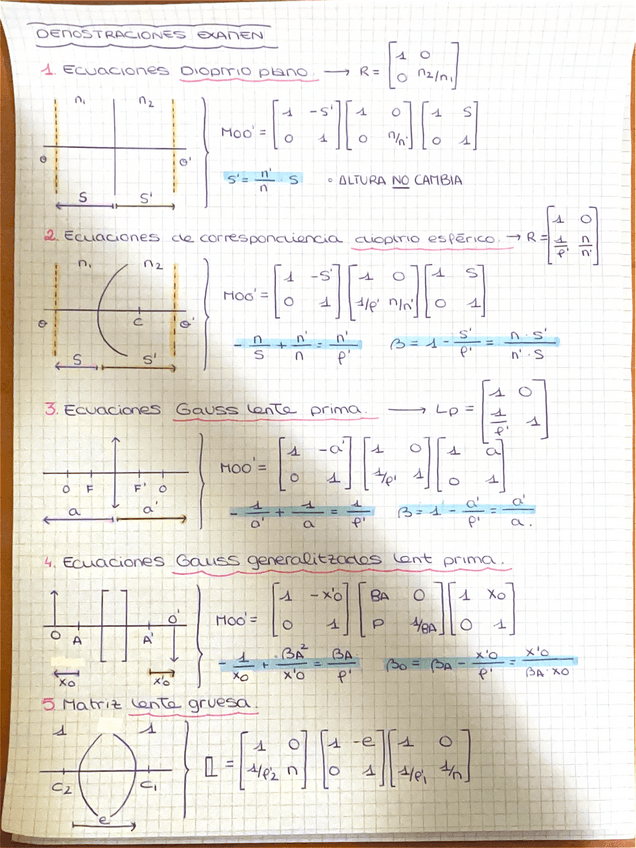 DEMOSTRACIONES EXAMEN
1. Ecuaciones Dioptrio plano. → R = [1 0; 0 n2/n1]
n1 n2
MOO' = [1 -S'; 0 1] [1 0; 0 n/n'] [1 S; 0 1]
O O'
S' = n'/n · S ∘ ALTURA NO CAMBIA
S S'
2. Ecuaciones de correspondencia dioptrio esférico. → R = [1 0; 1/f' n/n']
n1 n2
MOO' = [1 -S'; 0 1] [1 0; 1/f' n/n'] [1 S; 0 1]
O C O'
- n/S + n'/n = n'/f' β = 1 - S'/f' = n · S'/n' · S
S S'
3. Ecuaciones Gauss lente prima. → Lp = [1 0; 1/f' 1]
MOO' = [1 -a'; 0 1] [1 0; 1/f' 1] [1 a; 0 1]
O F F' O
a a'
- 1/a' + 1/a = 1/f' β = 1 - a'/f' = a'/a.
4. Ecuaciones Gauss generalitzades lent prima.
MOO' = [1 -x'o; 0 1] [βA 0; P 1/βA] [1 xo; 0 1]
O A A' O'
- 1/xo + βA²/x'o = βA/f' βo = βA - x'o/f' = x'o/βA·xo
xo x'o
5. Matriz lente gruesa.
1 1
L = [1 0; 1/f'2 n] [1 -e; 0 1] [1 0; 1/f'1 1/n]
C2 C1
e